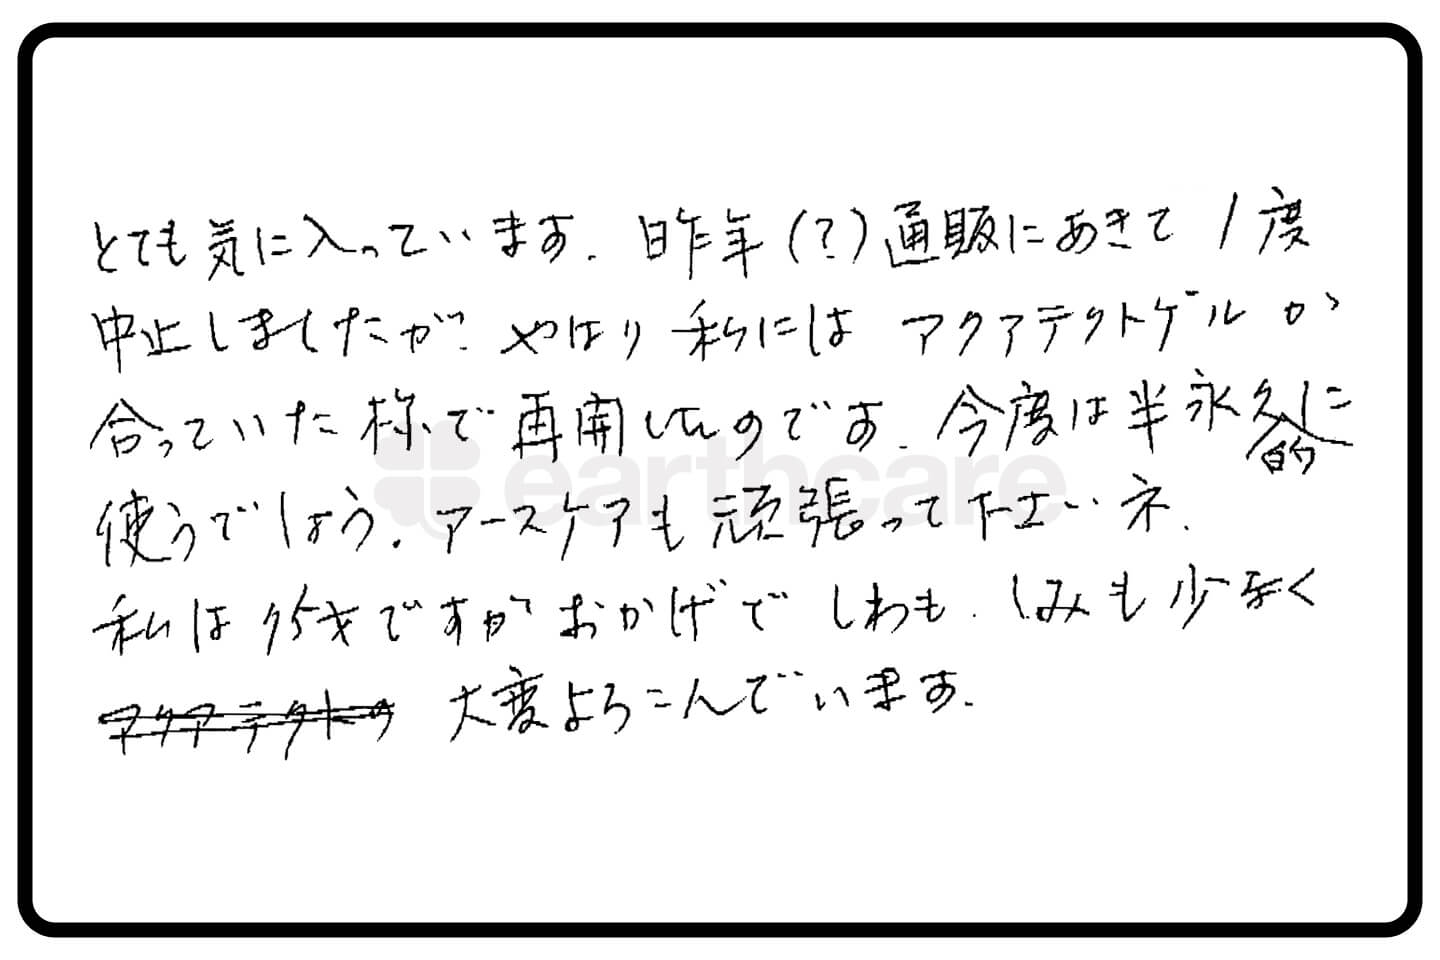 とても気に入っています. 昨年(?)通販にあきて1度
中止しましたが. やはり私には アクアテクトゲルが
合っていた様で再開したのです. 今度は半永久的に
使うでしょう. アースケアも頑張って下さいネ.
earthcare
私は 才ですが おかげで しわも. しみも少なく
アクアテクトの 大変よろこんでいます.